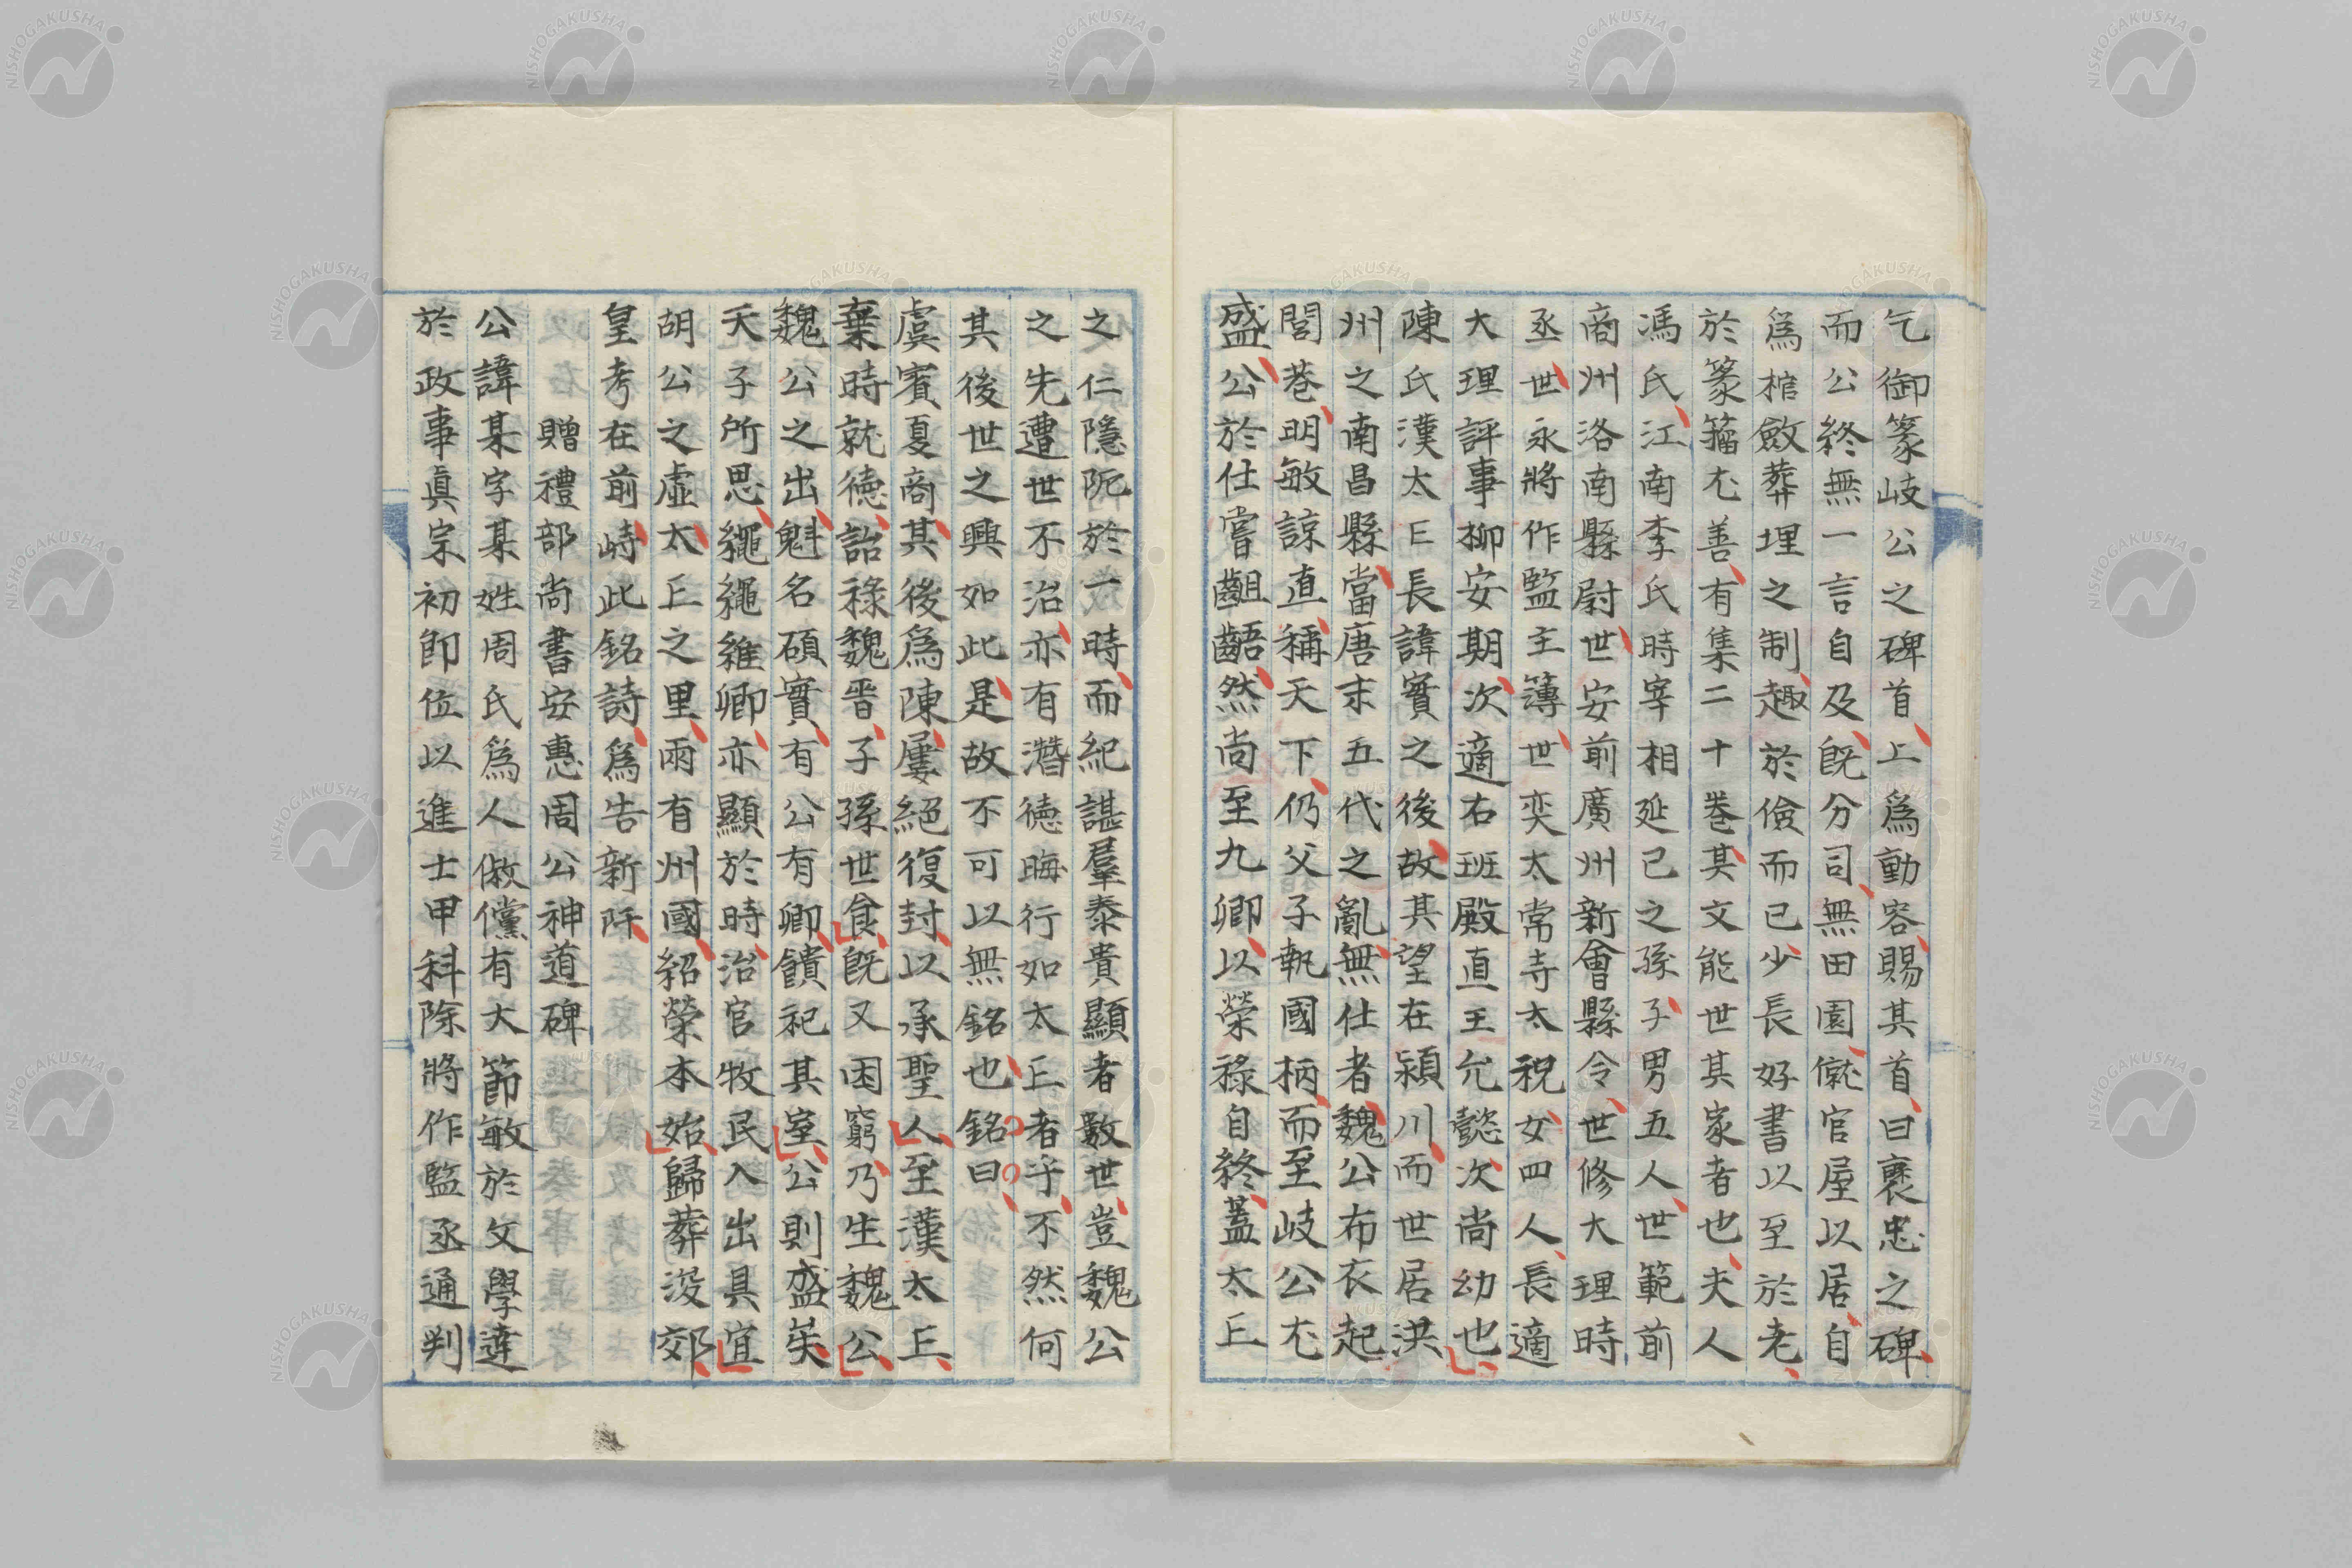 乞御篆岐公之碑首上爲動容賜其首曰褒忠之碑
而公終無一言自及旣分司無田園僦官屋以居自
爲棺斂葬埋之制趣於儉而已少長好書以至於老
於篆籀尤善有集二十卷其文能世其家者也夫人
馮氏江南李氏時宰相延已之孫子男五人世範前
商州洛南縣尉世安前廣州新會縣令世修大理時
丞世永將作監主簿世奕太常寺太祝女四人長適
大理評事柳安期次適右班殿直王允懿次尚幼也
陳氏漢太𠀉長諱寔之後故其望在潁川而世居洪
州之南昌縣當唐末五代之亂無仕者魏公布衣起
閭巷明敏諒直稱天下仍父子執國柄而至岐公尤
盛公於仕嘗齟齬然尚至九卿以榮祿自終蓋太𠀉
之仁隱阨於一時而紀諶羣泰貴顯者數世豈魏公
之先遭世不治亦有潛德晦行如太𠀉者乎不然何
其後世之興如此是故不可以無銘也銘曰
虞賓夏商其後爲陳屢絕復封以承聖人至漢太𠀉
棄時就德詒祿魏晉子孫世食旣又困窮乃生魏公
魏公之出魁名碩實有公有卿饋祀其室公則盛矣
天子所思繩繩維卿亦顯於時治官牧民入出具宜
胡公之虛太𠀉之里兩有州國紹榮本始歸葬沒郊
皇考在前峙此銘詩爲告新阡
贈禮部尚書安惠周公神道碑
公諱某字某姓周氏爲人倣儻有大節敏於文學達
於政事眞宗初卽位以進士甲科除將作監丞通判
NISHOGAKUSHA